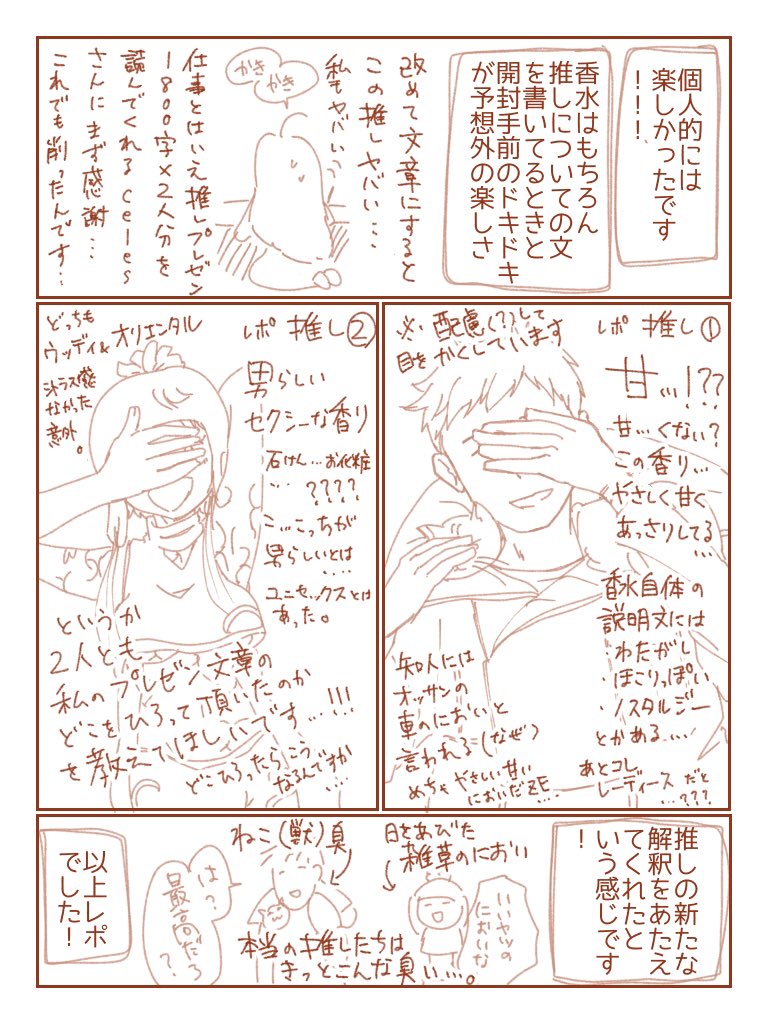 個人的には
楽しかったです
！！！
香水はもちろん
推しについての文
を書いてるときと
開封手前のドキドキ
が予想外の楽しさ
改めて文章にすると
この推しヤバい…
私もヤバい…
かき
かき
仕事とはいえ推しプレゼン
1800字×2人分を
読んでくれるceles
さんにまず感謝…
これでも削ったんです…
レポ 推し①
※配慮(?)して
目をかくしています
甘…!??
甘…くない?
この香り…
やさしく甘く
あっさりしてる
…
香水自体の
説明文には
・わたがし
・ほこりっぽい
・ノスタルジー
とかある…
知人には
オッサンの
車のにおいと
言われる(なぜ)
めちゃやさしい甘い
においだゼE…
あとコレ
レーディースだと
…???
レポ 推し②
男らしい
セクシーな香り
石けん…お化粧
…????
こ…こっちが
男らしいとは
…
ユニセックスとは
あった。
どっちも
ウッディ&オリエンタル
シトラス感
なかった
意外。
というか
2人とも
私のプレゼン文章の
どこをひろって頂いたのか
を教えてほしいです…!!!
どこひろったらこう
なるんですか
…
推しの新たな
解釈をあたえ
てくれたと
いう感じです
！
日をあびた
雑草のにおい
いいヤツの
においな
ねこ(獣)臭
は?
最高だろ
?
本当の推したちは
きっとこんな臭い…。
以上レポ
でした！